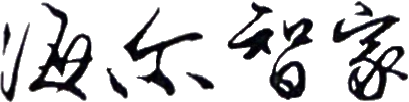 海尔智家